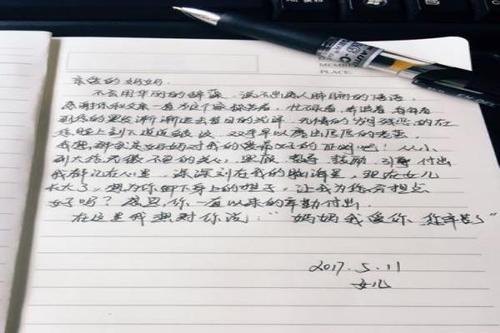 亲爱的妈妈:
不会用华丽的辞藻,说不出感人肺腑的话语,
感谢你和父亲一直为这个家操劳着,
到你的黑发渐渐渐逝去昔日的光泽,无情的岁月残忍的在
你脸上刻下道道皱纹,双手早以磨出厚厚的老茧
我想,那就是妈妈对我的爱最好的证明吧!从小
到大你无微不至的关心,
我都记在心里,深深刻在我的脑海里,现在女儿
长大了,想为你卸下身上的担子,让我为你分担点
好吗?感恩,你一直以来的辛勤付出。
在这里我想对你说:“妈妈我爱你,您辛苦了”
2017.5.11
女儿